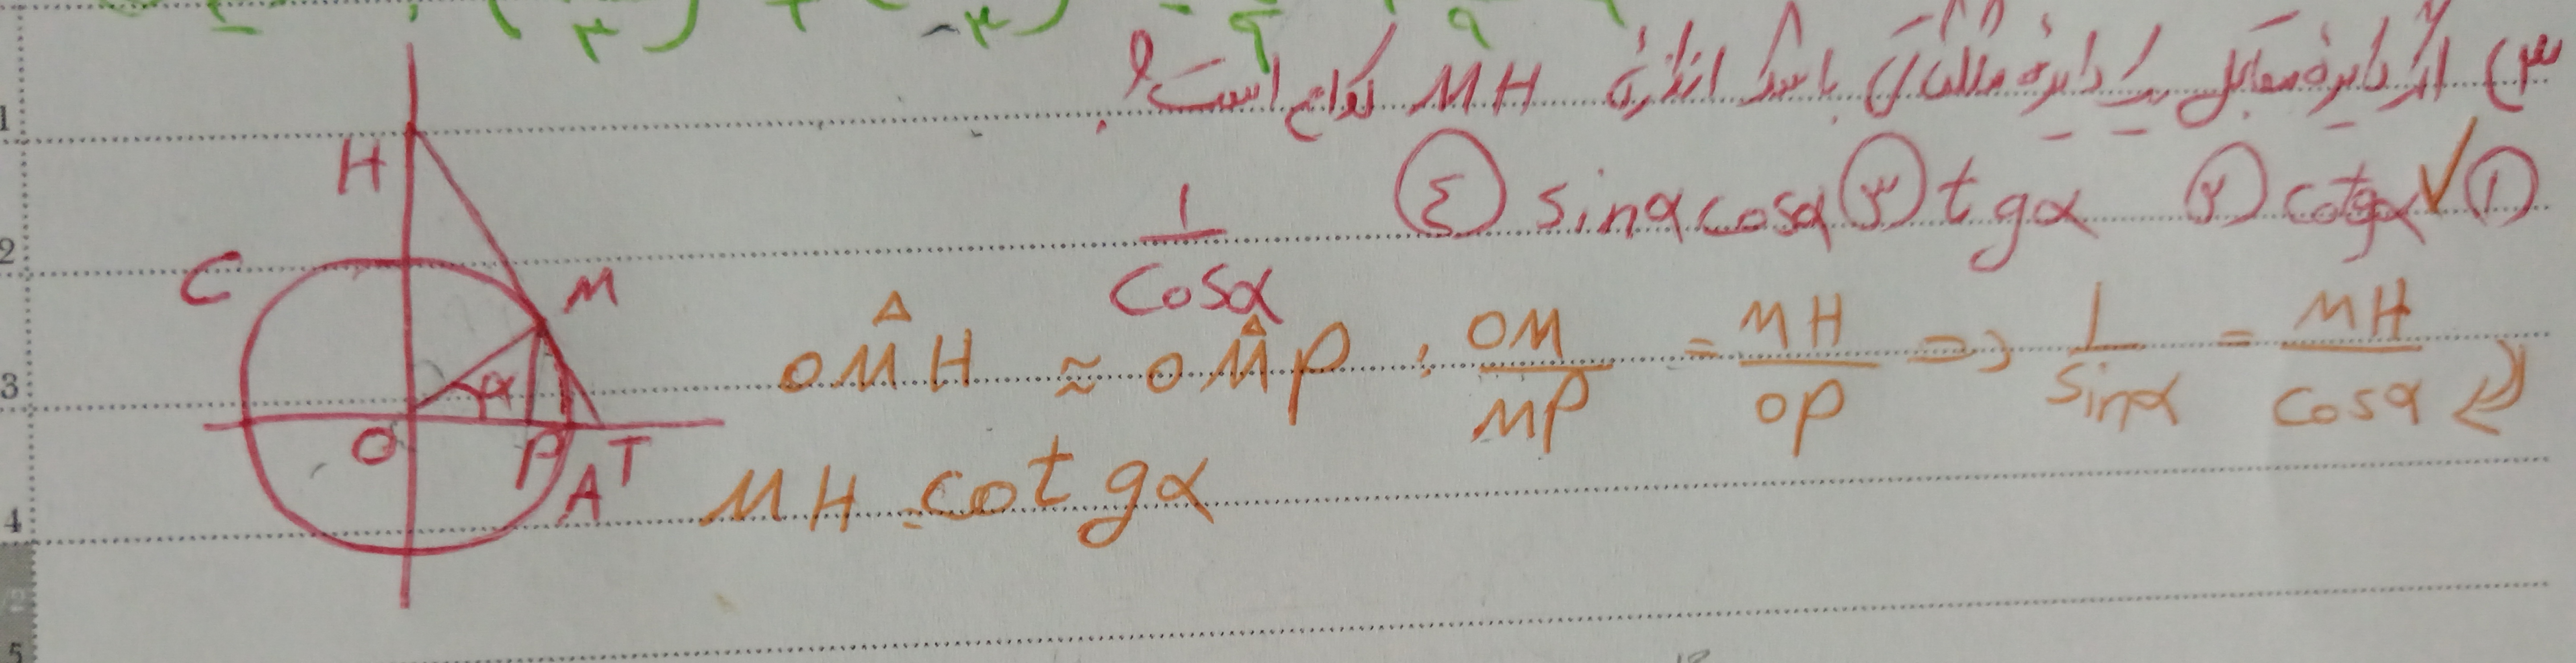 ۳) اگر دایره مقابل یک دایره مثلثاتی باشد اندازه MH کدام است؟
۱) cotgα ✓ ۲) tgα ۳) sinαcosα ۴) 1/cosα
H
C
M
α
O
P
A
T
OMH ≈ OMP : OM/MP = MH/OP => 1/sinα = MH/cosα =>
MH = cotgα
1
2
3
4
5